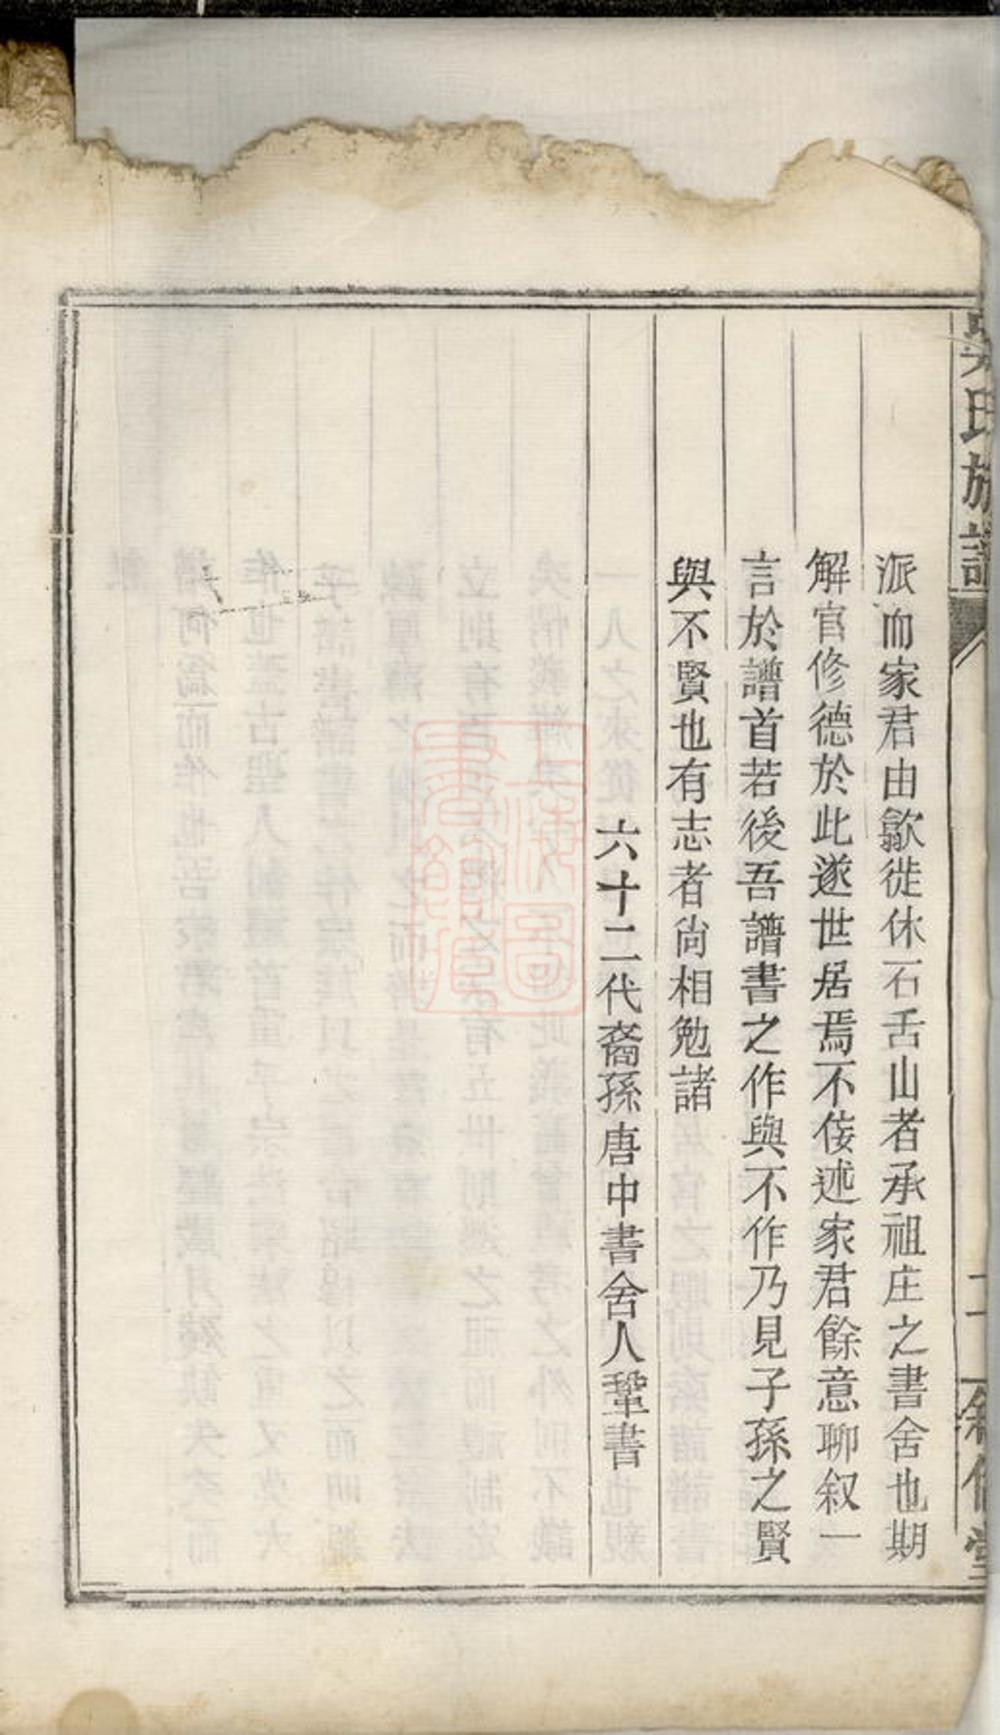 吳氏族譜
二
叙倫堂
派而家君由歙徙休石舌山者承祖庄之書舍也期
解官修德於此遂世居焉不佞述家君餘意聊叙一
言於譜首若後吾譜書之作與不作乃見子孫之賢
與不賢也有志者尙相勉諸
六十二代裔孫唐中書舍人鞏書